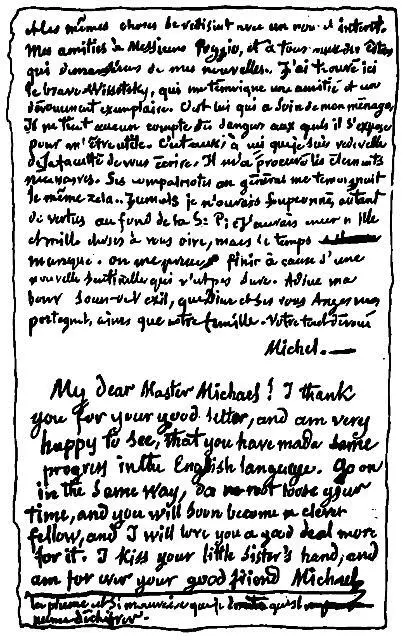 et les mêmes choses se redisent avec un nouvel intérêt.
Mes amitiés à Messieurs Poggio, et à tous
qui de mes nouvelles. J'ai trouvé ici
le brave Wissotsky, qui me témoigne une amitié et un
dévouement exemplaire. C'est lui qui a soin de mon ménage.
Il ne tient aucun compte des dangers aux quels il s'expose
pour m'être utile. C'est aussi à lui que je suis redevable
de la faculté de vous écrire. Il m'a procuré les éléments
nécessaires. Ses compatriotes en général me témoignent
le même zèle. Jamais je n'aurais soupçonné autant
de vertus au fond de la J'aurais encore mille
et mille choses à vous dire, mais le temps
manque. On me presse finir à cause d'une
nouvelle sentinelle qui n'est pas sure. Adieu ma
soeur exil, que Dieu et ses Anges vous
protegent, ainsi que votre famille. Votre tout dévoué
Michel.
My dear Master Michael! I thank
you for your good letter, and am very
happy to see, that you have made some
progress in the English language. Go on
in the same way, do not loose your
time, and you will soon become a clever
fellow, and I will love you a good deal more
for it. I kiss your little sister's hand, and
am for ever your good friend Michael
La plume est si mauvaise que je doute qu'on
puisse déchiffrer.